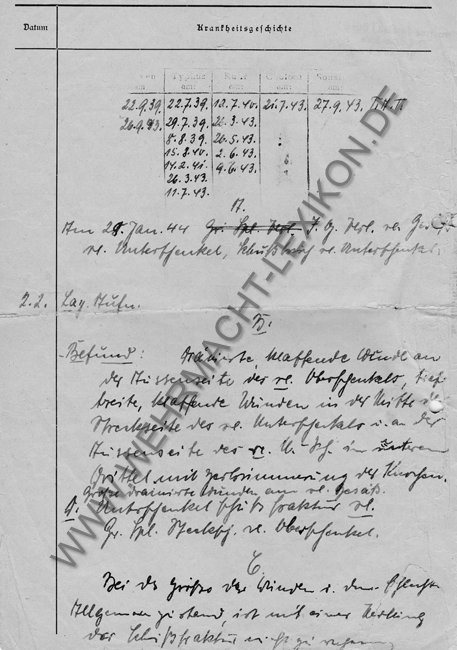 Datum Krankheitsgeschichte
Typhus Ruhr Cholera
am: am: am: am:
22.9.39. 22.7.39. 12.7.40. 21.7.43. 27.9.43.
26.9.43. 29.7.39. 26.3.43.
8.8.39. 26.5.43.
15.8.40. 2.6.43.
14.2.41. 9.6.43.
26.3.43.
11.7.43.
A.
Am Jan. 44 Gr. Spl. Verl. re.
re. Unterschenkel, Schußbruch re. Unterschenkel.
2.2. Laz. Aufn.
B.
Befund: Drainierte, klaffende Wunde an
der Aussenseite des re. Oberschenkels, tief
breite, klaffende Wunden in der Mitte der
Streckseite des re. Unterschenkels u. an der
Aussenseite des re. U. Sch. im unteren
Drittel mit Zertrümmerung der Knochen.
Große drainierte Wunden am re. Gesäß.
D. Unterschenkelschußfraktur re.
Gr. Spl. Stecksch. re. Oberschenkel.
C.
Bei der Größe der Wunden u. dem schlechten
Allgemeinzustand, ist mit einer Heilung
der Schußfraktur nicht zu rechnen
WWW.WEHRMACHT-LEXIKON.DE